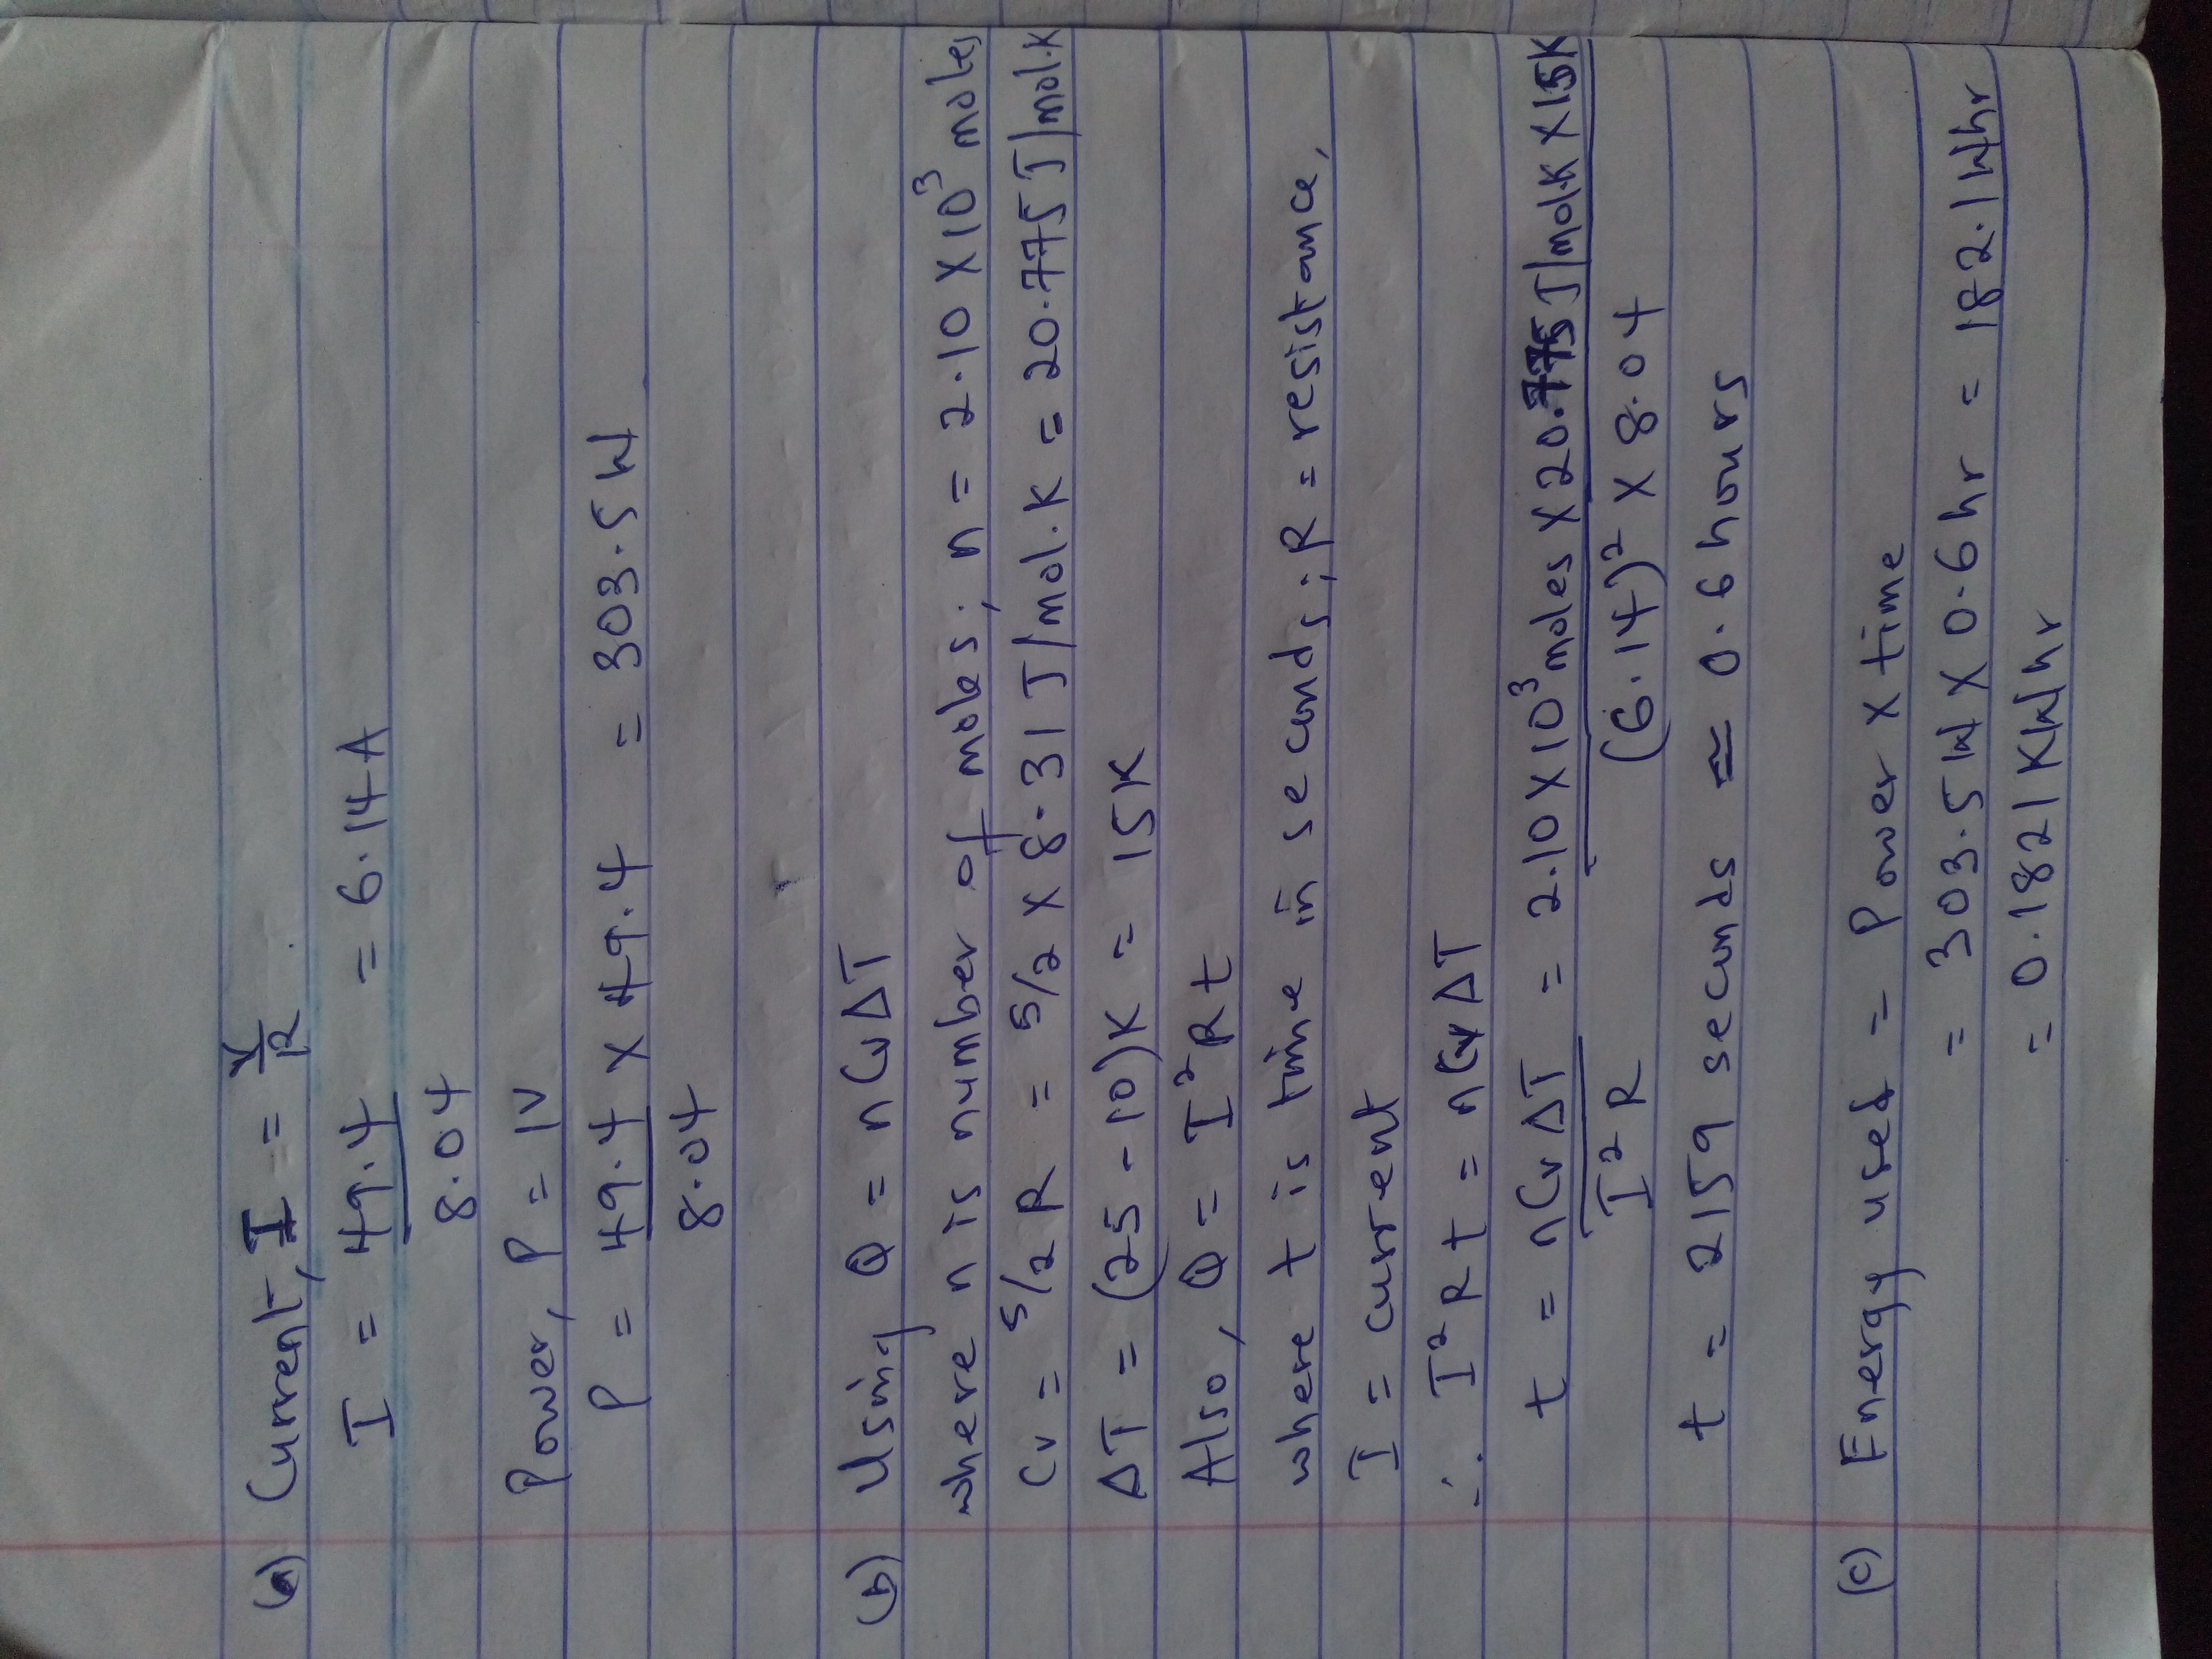 (a) Current, I = V/R
I = 49.4 = 6.14A
8.04
Power, P = IV
P = 49.4 x 49.4 = 303.5W
8.04
(b) Using Q = nCvΔT
where n is number of moles; n = 2.10 x 10³ moles,
Cv = 5/2 R = 5/2 x 8.31 J/mol.K = 20.775 J/mol.K
ΔT = (25-10)K = 15K
Also, Q = I²Rt
where t is time in seconds; R = resistance,
I = current
∴ I²Rt = nCvΔT
t = nCvΔT = 2.10x10³moles x 20.775J/mol.K x 15K
I²R (6.14)² x 8.04
t = 2159 seconds ≃ 0.6 hours
(c) Energy used = Power x time
= 303.5W x 0.6hr = 182.1Whr
= 0.1821KWhr